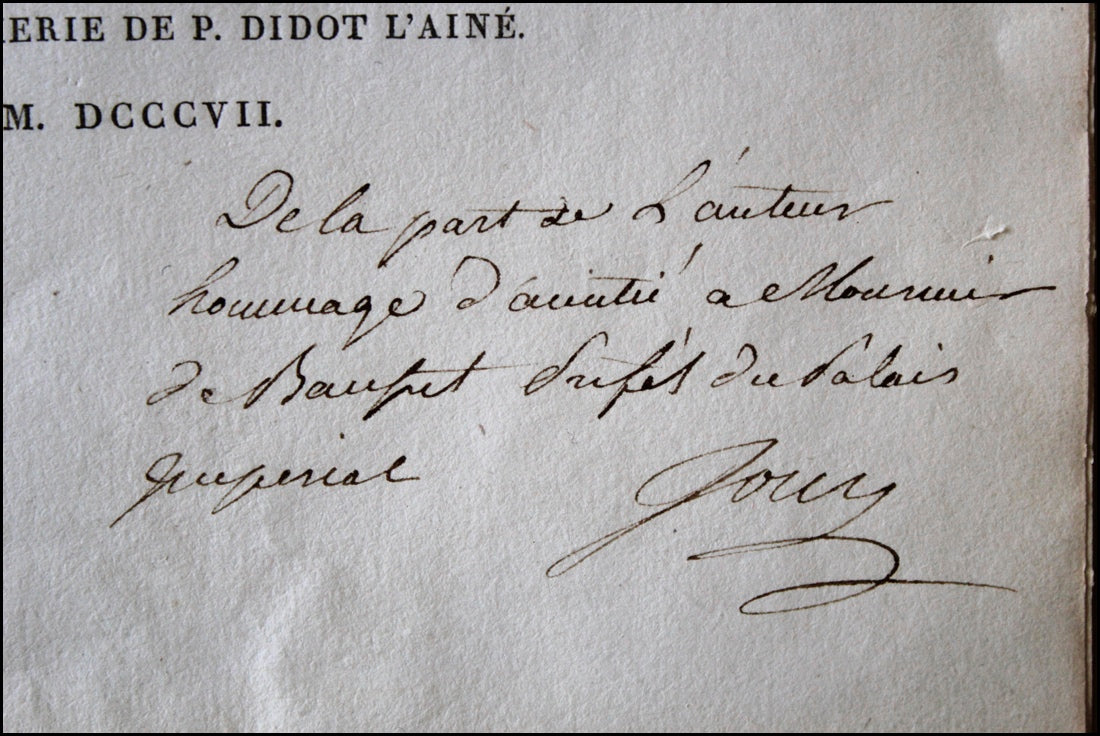 ERIE DE P. DIDOT L'AINÉ.
M. DCCCVII.
De la part de L'auteur
hommage d'amitié a Monsieur
de Bausset Préfet du Palais
Imperial
Jouy